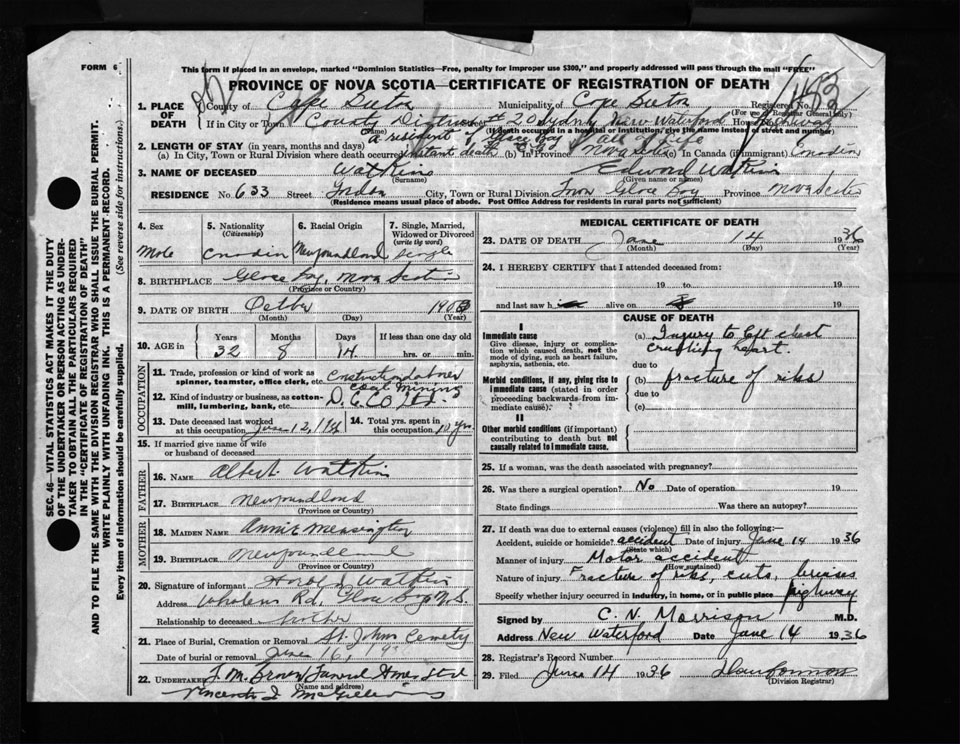 FORM 6
This form if placed in an envelope, marked "Dominion Statistics—Free, penalty for improper use $300," and properly addressed will pass through the mail "FREE"
PROVINCE OF NOVA SCOTIA—CERTIFICATE OF REGISTRATION OF DEATH
SEC. 46—VITAL STATISTICS ACT MAKES IT THE DUTY
OF THE UNDERTAKER OR PERSON ACTING AS UNDER-
TAKER TO OBTAIN ALL THE PARTICULARS REQUIRED
IN THE "CERTIFICATE OF REGISTRATION OF DEATH"
AND TO FILE THE SAME WITH THE DIVISION REGISTRAR WHO SHALL ISSUE THE BURIAL PERMIT.
WRITE PLAINLY WITH UNFADING INK. THIS IS A PERMANENT RECORD.
Every item of information should be carefully supplied. (See reverse side for instructions.)
1. PLACE OF DEATH County of Cape Breton Municipality of Cape Breton Registered No.
(For use of Registrar General only)
If in City or Town County District # 20 Sydney New Waterford Highway
(Name) (If death occurred in a hospital or institution, give the name instead of street and number)
a resident of Glace Bay all life
2. LENGTH OF STAY (in years, months and days)
(a) In City, Town or Rural Division where death occurred instant death (b) In Province Nova Scotia (c) in Canada (if immigrant)
3. NAME OF DECEASED Watkins Edward Watkins
(Surname) (Given name or names)
RESIDENCE No. 633 Street City, Town or Rural Division Town Glace Bay Province Nova Scotia
(Residence means usual place of abode. Post Office Address for residents in rural parts not sufficient)
4. Sex
5. Nationality
(Citizenship)
6. Racial Origin
7. Single, Married, Widowed or Divorced
(write the word)
Male Canadian Newfoundland single
8. BIRTHPLACE Glace Bay, Nova Scotia
(Province or Country)
9. DATE OF BIRTH October 1903
(Month) (Day) (Year)
10. AGE in Years Months Days If less than one day old
32 8 14 hrs. or min.
OCCUPATION
11. Trade, profession or kind of work as spinner, teamster, office clerk, etc. Construction laborer
12. Kind of industry or business, as cotton-mill, lumbering, bank, etc. Coal Mining
D. C. CO Ltd.
13. Date deceased last worked at this occupation June 12,
14. Total yrs. spent in this occupation 10 yrs.
15. If married give name of wife or husband of deceased
FATHER
16. NAME Albert Watkins
17. BIRTHPLACE Newfoundland
(Province or Country)
MOTHER
18. MAIDEN NAME Annie
19. BIRTHPLACE Newfoundland
(Province or Country)
20. Signature of informant Harold Watkins
Address Rd, Glace Bay N.S.
Relationship to deceased brother
21. Place of Burial, Cremation or Removal St. Johns Cemetery
Date of burial or removal June 16,
22. UNDERTAKER J. M. Brown Funeral Home
(Name and address)
MEDICAL CERTIFICATE OF DEATH
23. DATE OF DEATH June 14 1936
(Month) (Day) (Year)
24. I HEREBY CERTIFY that I attended deceased from:
19 to 19
and last saw h alive on 19
CAUSE OF DEATH
I
Immediate cause
Give disease, injury or complication which caused death, not the mode of dying, such as heart failure, asphyxia, asthenia, etc.
(a) Injury to left chest
crushing heart.
due to
Morbid conditions, if any, giving rise to immediate cause (stated in order proceeding backwards from immediate cause).
(b) fracture of ribs
due to
(c)
II
Other morbid conditions (if important) contributing to death but not causally related to immediate cause.
25. If a woman, was the death associated with pregnancy?
26. Was there a surgical operation? No Date of operation 19
State findings Was there an autopsy?
27. If death was due to external causes (violence) fill in also the following:—
Accident, suicide or homicide? accident Date of injury June 14 1936
(State which)
Manner of injury Motor accident
(How sustained)
Nature of injury Fracture of ribs, cuts, bruises
Specify whether injury occurred in industry, in home, or in public place highway
Signed by C. N. Morrison M.D.
Address New Waterford Date June 14 1936
28. Registrar's Record Number
29. Filed June 14 1936
(Division Registrar)